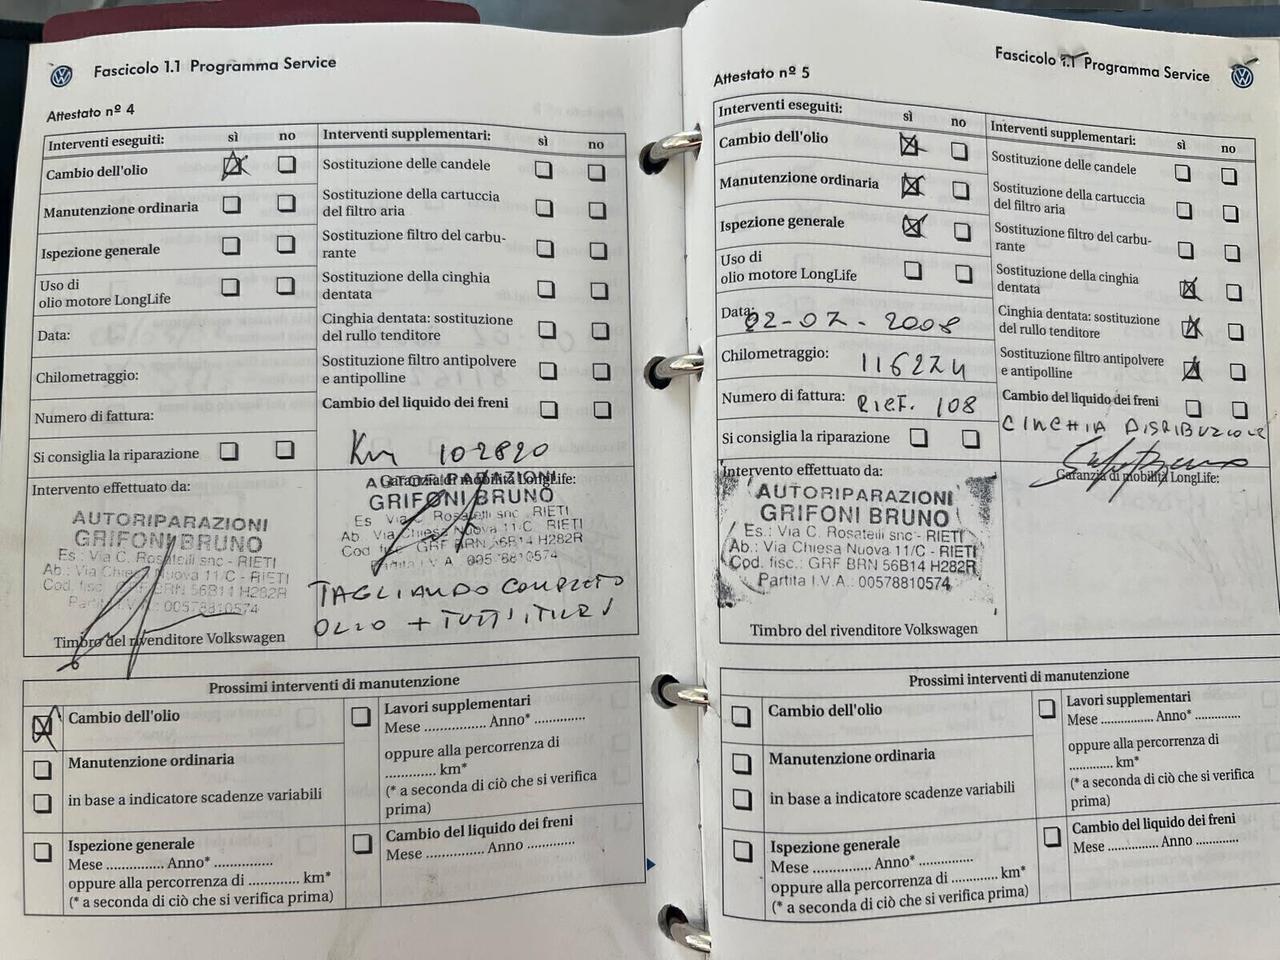 Fascicolo 1.1 Programma Service
Attestato nº 4
Interventi eseguiti: sì no
Cambio dell'olio
Manutenzione ordinaria
Ispezione generale
Uso di
olio motore LongLife
Data:
Chilometraggio:
Numero di fattura:
Si consiglia la riparazione
Interventi supplementari: sì no
Sostituzione delle candele
Sostituzione della cartuccia
del filtro aria
Sostituzione filtro del carbu-
rante
Sostituzione della cinghia
dentata
Cinghia dentata: sostituzione
del rullo tenditore
Sostituzione filtro antipolvere
e antipolline
Cambio del liquido dei freni
Km 102820
Intervento effettuato da:
AUTORIPARAZIONI
GRIFONI BRUNO
Es.: Via C. Rosatelli snc - RIETI
Ab.: Via Chiesa Nuova 11/C - RIETI
Cod. fisc.: GRF BRN 56B14 H282R
Partita I.V.A.: 00578810574
Timbro del rivenditore Volkswagen
Garanzia di mobilità LongLife:
AUTORIPARAZIONI
GRIFONI BRUNO
Es. Via C. Rosatelli snc - RIETI
Ab. Via Chiesa Nuova 11/C - RIETI
Cod fisc. GRF BRN 56B14 H282R
Partita I.V.A. 00578810574
TAGLIANDO COMPLETO
OLIO + TUTTI I FILTRI
Prossimi interventi di manutenzione
Cambio dell'olio
Manutenzione ordinaria
in base a indicatore scadenze variabili
Ispezione generale
Mese ............... Anno* .............
oppure alla percorrenza di ............ km*
(* a seconda di ciò che si verifica prima)
Lavori supplementari
Mese ............... Anno* .............
oppure alla percorrenza di
............. km*
(* a seconda di ciò che si verifica
prima)
Cambio del liquido dei freni
Mese ............... Anno ............
Fascicolo 1.1 Programma Service
Attestato nº 5
Interventi eseguiti: sì no
Cambio dell'olio
Manutenzione ordinaria
Ispezione generale
Uso di
olio motore LongLife
Data: 02-07-2008
Chilometraggio: 116274
Numero di fattura: RIEF. 108
Si consiglia la riparazione
Interventi supplementari: sì no
Sostituzione delle candele
Sostituzione della cartuccia
del filtro aria
Sostituzione filtro del carbu-
rante
Sostituzione della cinghia
dentata
Cinghia dentata: sostituzione
del rullo tenditore
Sostituzione filtro antipolvere
e antipolline
Cambio del liquido dei freni
CINCHIA DISRIBUZIONE
Intervento effettuato da:
AUTORIPARAZIONI
GRIFONI BRUNO
Es.: Via C. Rosatelli snc - RIETI
Ab.: Via Chiesa Nuova 11/C - RIETI
Cod. fisc.: GRF BRN 56B14 H282R
Partita I.V.A.: 00578810574
Timbro del rivenditore Volkswagen
Garanzia di mobilità LongLife:
Prossimi interventi di manutenzione
Cambio dell'olio
Manutenzione ordinaria
in base a indicatore scadenze variabili
Ispezione generale
Mese ............... Anno* .............
oppure alla percorrenza di ............ km*
(* a seconda di ciò che si verifica prima)
Lavori supplementari
Mese ............... Anno* .............
oppure alla percorrenza di
............. km*
(* a seconda di ciò che si verifica
prima)
Cambio del liquido dei freni
Mese ............... Anno ............